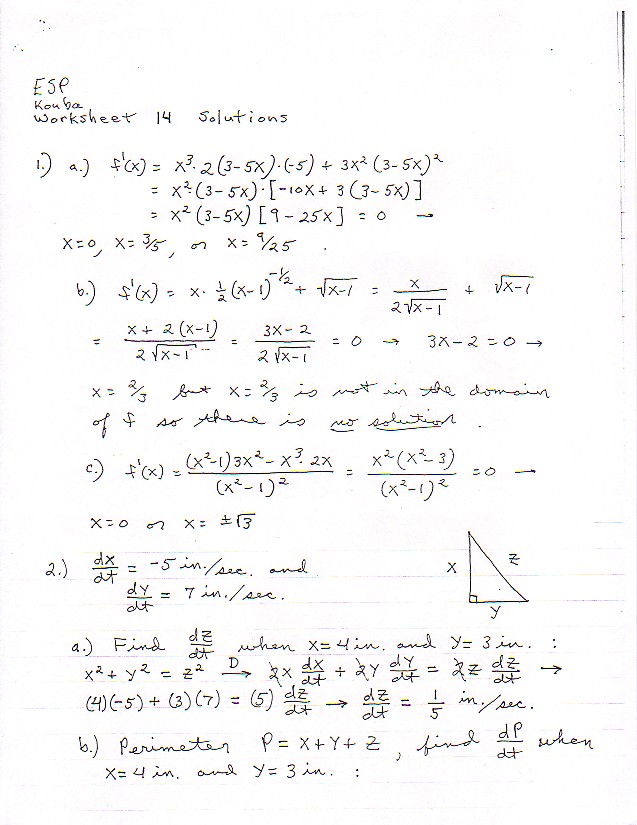 ESP
Kouba
Worksheet 14 Solutions
1.) a.) f'(x) = x³·2(3-5x)·(-5) + 3x²(3-5x)²
= x²(3-5x)·[-10x + 3(3-5x)]
= x²(3-5x)[9-25x] = 0 →
x=0, x=3/5, or x=9/25 .
b.) f'(x) = x·½(x-1)^(-1/2) + √(x-1) = x/(2√(x-1)) + √(x-1)
= (x+2(x-1))/(2√(x-1)) = (3x-2)/(2√(x-1)) = 0 → 3x-2=0 →
x=2/3 but x=2/3 is not in the domain
of f so there is no solution .
c.) f'(x) = ((x²-1)3x² - x³·2x)/(x²-1)² = x²(x²-3)/(x²-1)² = 0 →
x=0 or x= ±√3
2.) dx/dt = -5 in./sec. and
dy/dt = 7 in./sec.
x
z
y
a.) Find dz/dt when x=4 in. and y=3 in. :
x²+y²=z² D→ 2x dx/dt + 2y dy/dt = 2z dz/dt →
(4)(-5) + (3)(7) = (5) dz/dt → dz/dt = 1/5 in./sec.
b.) Perimeter P = x+y+z , find dP/dt when
x=4 in. and y=3 in. :